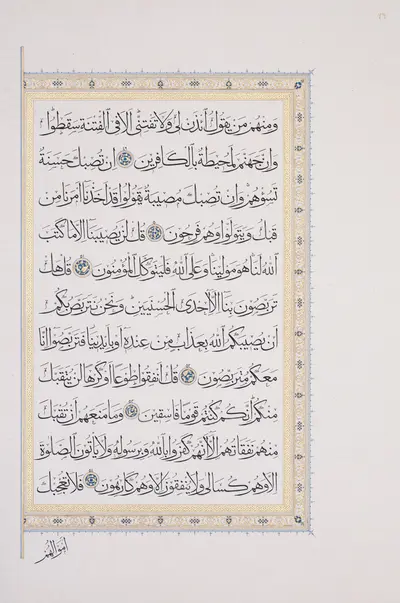 وَمِنْهُمْ مَنْ يَقُولُ ائْذَنْ لِي وَلَا تَفْتِنِّي أَلَا فِي الْفِتْنَةِ سَقَطُوا
وَإِنَّ جَهَنَّمَ لَمُحِيطَةٌ بِالْكَافِرِينَ إِنْ تُصِبْكَ حَسَنَةٌ
تَسُؤْهُمْ وَإِنْ تُصِبْكَ مُصِيبَةٌ يَقُولُوا قَدْ أَخَذْنَا أَمْرَنَا مِنْ
قَبْلُ وَيَتَوَلَّوْا وَهُمْ فَرِحُونَ قُلْ لَنْ يُصِيبَنَا إِلَّا مَا كَتَبَ
اللَّهُ لَنَا هُوَ مَوْلَينَا وَعَلَى اللَّهِ فَلْيَتَوَكَّلِ الْمُؤْمِنُونَ قُلْ هَلْ
تَرَبَّصُونَ بِنَا إِلَّا إِحْدَى الْحُسْنَيَيْنِ وَنَحْنُ نَتَرَبَّصُ بِكُمْ
أَنْ يُصِيبَكُمُ اللَّهُ بِعَذَابٍ مِنْ عِنْدِهِ أَوْ بِأَيْدِينَا فَتَرَبَّصُوا إِنَّا
مَعَكُمْ مُتَرَبِّصُونَ قُلْ أَنْفِقُوا طَوْعًا أَوْ كَرْهًا لَنْ يُتَقَبَّلَ
مِنْكُمْ إِنَّكُمْ كُنْتُمْ قَوْمًا فَاسِقِينَ وَمَا مَنَعَهُمْ أَنْ تُقْبَلَ
مِنْهُمْ نَفَقَاتُهُمْ إِلَّا أَنَّهُمْ كَفَرُوا بِاللَّهِ وَبِرَسُولِهِ وَلَا يَأْتُونَ الصَّلٰوةَ
إِلَّا وَهُمْ كُسَالَى وَلَا يُنْفِقُونَ إِلَّا وَهُمْ كَارِهُونَ فَلَا تُعْجِبْكَ
أَمْوَالُهُمْ